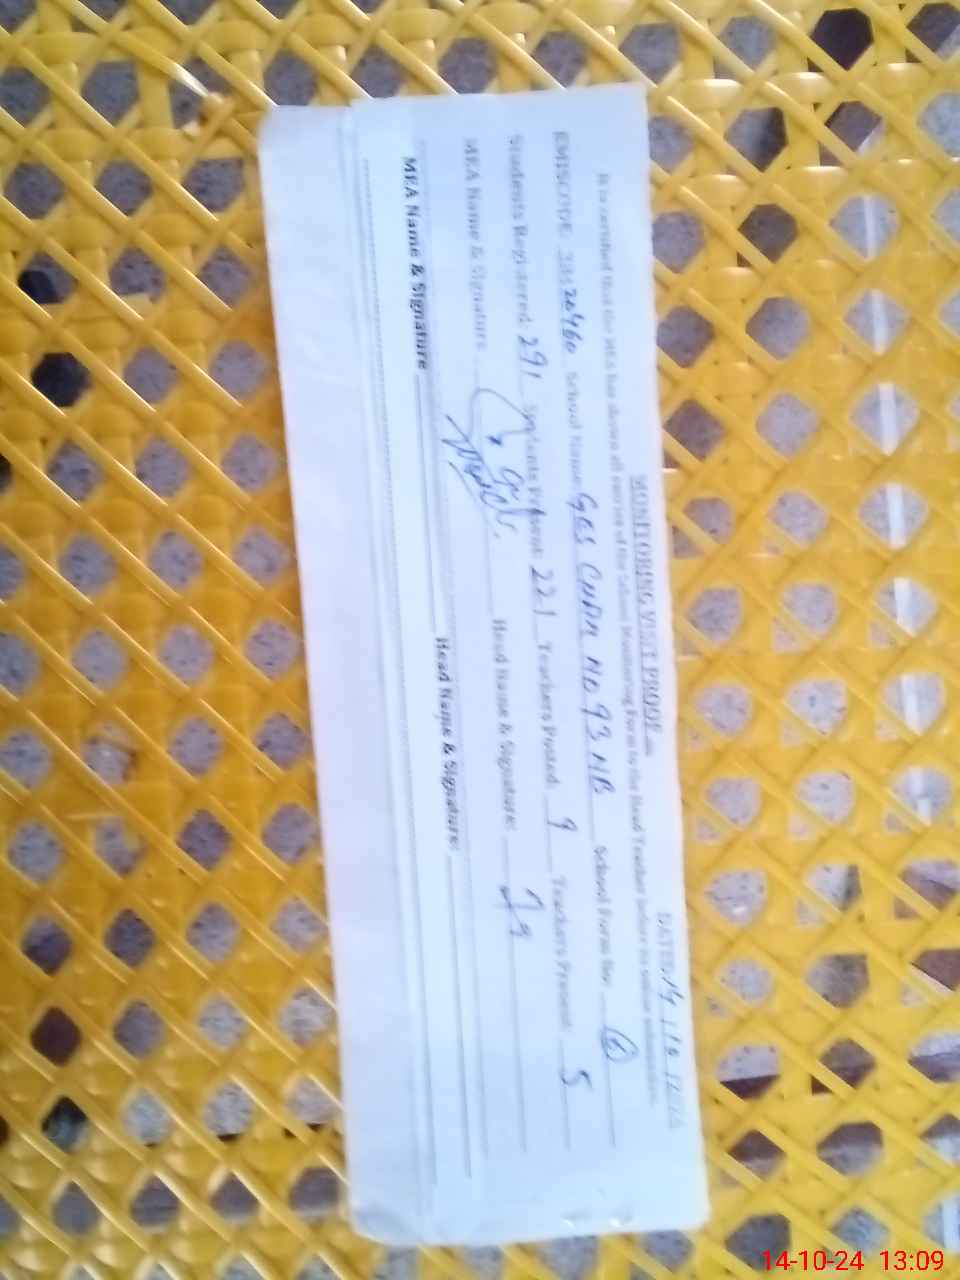 MONITORING VISIT PROOF
DATED 14 / 10 /
It is certified that the MEA has shown all entries of the School Monitoring Form to the Head Teacher before its online submission.
EMISCODE: School Name: GES CHAK NO 93 NB School Form No: 6
Students Registered: 291 Students Present: 221 Teachers Posted: 9 Teachers Present: 5
MEA Name & Signature Head Name & Signature:
MEA Name & Signature Head Name & Signature:
14-10-24 13:09